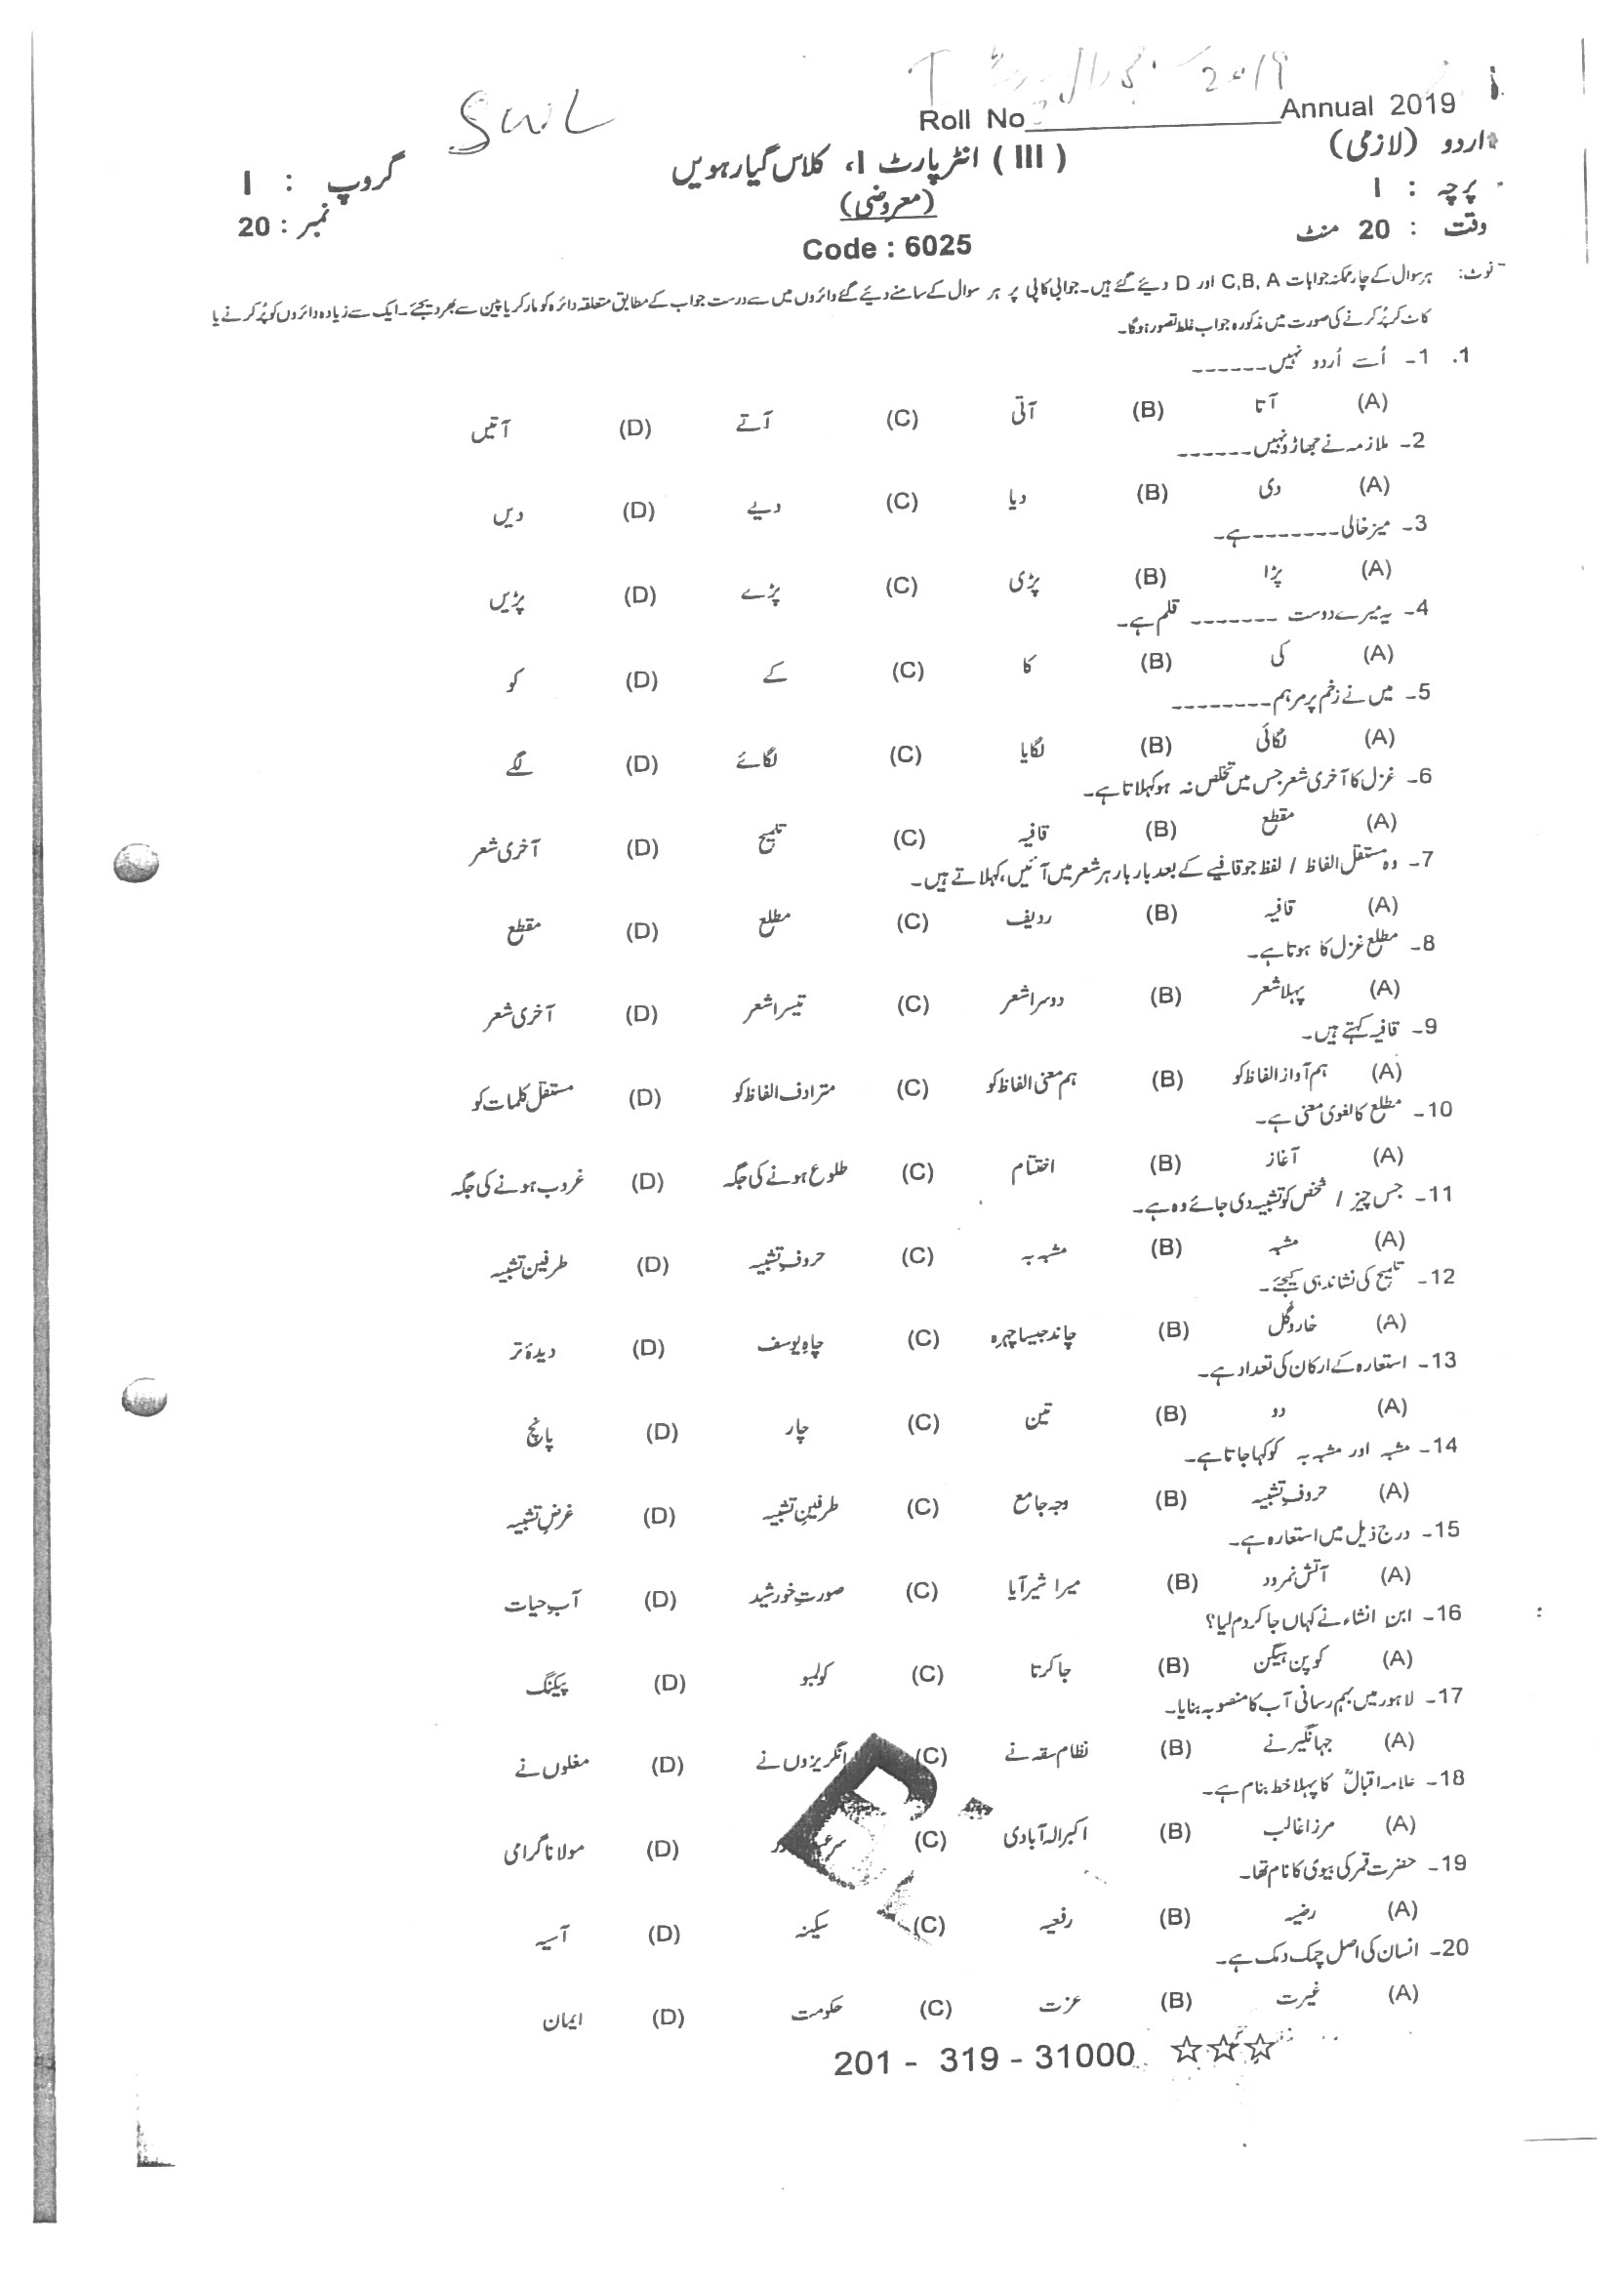 2019
SWL
Roll No____________Annual 2019
اردو (لازمی) ( III ) انٹر پارٹ I، کلاس گیارہویں گروپ : I
پرچہ : I (معروضی) نمبر : 20
وقت : 20 منٹ Code : 6025
نوٹ: ہر سوال کے چار ممکنہ جوابات C,B,A اور D دیئے گئے ہیں۔ جوابی کاپی پر ہر سوال کے سامنے دیئے گئے دائروں میں سے درست جواب کے مطابق متعلقہ دائرہ کو مارکر یا پین سے بھر دیجئے۔ ایک سے زیادہ دائروں کو پُر کرنے یا
کاٹ کر پُر کرنے کی صورت میں مذکورہ جواب غلط تصور ہوگا۔
1. 1۔ اُسے اُردو نہیں۔۔۔۔۔۔
(A) آتا (B) آتی (C) آتے (D) آتیں
2۔ ملازمہ نے جھاڑو نہیں۔۔۔۔۔۔
(A) دی (B) دیا (C) دیے (D) دیں
3۔ میز خالی۔۔۔۔۔۔۔ہے۔
(A) پڑا (B) پڑی (C) پڑے (D) پڑیں
4۔ یہ میرے دوست ۔۔۔۔۔۔۔ قلم ہے۔
(A) کی (B) کا (C) کے (D) کو
5۔ میں نے زخم پر مرہم۔۔۔۔۔۔۔۔
(A) لگائی (B) لگایا (C) لگائے (D) لگے
6۔ غزل کا آخری شعر جس میں تخلص نہ ہو کہلاتا ہے۔
(A) مقطع (B) قافیہ (C) تلمیح (D) آخری شعر
7۔ وہ مستقل الفاظ / لفظ جو قافیے کے بعد بار بار ہر شعر میں آئیں، کہلاتے ہیں۔
(A) قافیہ (B) ردیف (C) مطلع (D) مقطع
8۔ مطلع غزل کا ہوتا ہے۔
(A) پہلا شعر (B) دوسرا شعر (C) تیسرا شعر (D) آخری شعر
9۔ قافیہ کہتے ہیں۔
(A) ہم آواز الفاظ کو (B) ہم معنی الفاظ کو (C) مترادف الفاظ کو (D) مستقل کلمات کو
10۔ مطلع کا لغوی معنی ہے۔
(A) آغاز (B) اختتام (C) طلوع ہونے کی جگہ (D) غروب ہونے کی جگہ
11۔ جس چیز / شخص کو تشبیہ دی جائے وہ ہے۔
(A) مشبہ (B) مشبہ بہ (C) حروفِ تشبیہ (D) طرفینِ تشبیہ
12۔ تلمیح کی نشاندہی کیجئے۔
(A) خار و گُل (B) چاند جیسا چہرہ (C) چاہِ یوسف (D) دیدۂ تر
13۔ استعارہ کے ارکان کی تعداد ہے۔
(A) دو (B) تین (C) چار (D) پانچ
14۔ مشبہ اور مشبہ بہ کو کہا جاتا ہے۔
(A) حروفِ تشبیہ (B) وجہ جامع (C) طرفینِ تشبیہ (D) غرضِ تشبیہ
15۔ درج ذیل میں استعارہ ہے۔
(A) آتش نمرود (B) میرا شیر آیا (C) صورتِ خورشید (D) آبِ حیات
16۔ ابن انشاء نے کہاں جا کر دم لیا؟
(A) کوپن ہیگن (B) جاکرتا (C) کولمبو (D) پیکنگ
17۔ لاہور میں بہم رسانی آب کا منصوبہ بنایا۔
(A) جہانگیر نے (B) نظام سقہ نے (C) انگریزوں نے (D) مغلوں نے
18۔ علامہ اقبالؒ کا پہلا خط بنام ہے۔
(A) مرزا غالب (B) اکبر الہ آبادی (C) (D) مولانا گرامی
19۔ حضرت قمر کی بیوی کا نام تھا۔
(A) رضیہ (B) رفعیہ (C) سکینہ (D) آسیہ
20۔ انسان کی اصل چمک دمک ہے۔
(A) غیرت (B) عزت (C) حکومت (D) ایمان
201 - 319 - 31000 ☆☆☆